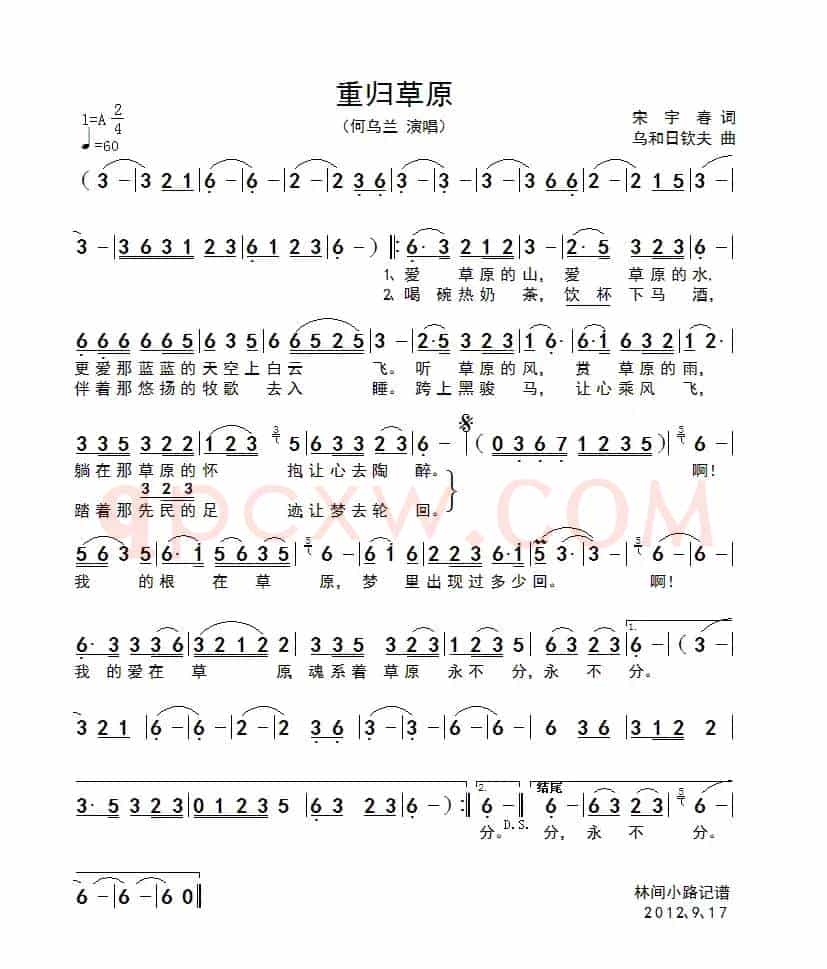 重归草原
(何乌兰 演唱)
1=A 2/4
♩=60
宋宇春 词
乌和日钦夫 曲
( 3 - | 3 2 1 | 6 - | 6 - | 2 - | 2 3 6 | 3 - | 3 - | 3 - | 3 6 6 | 2 - | 2 1 5 | 3 - |
3 - | 3 6 3 1 2 3 | 6 1 2 3 | 6 - ) ‖: 6· 3 2 1 2 | 3 - | 2· 5 3 2 3 | 6 - |
1、爱 草原的山, 爱 草原的水.
2、喝碗热奶 茶, 饮杯 下马 酒,
6 6 6 6 6 5 | 6 3 5 | 6 6 5 2 5 | 3 - | 2· 5 3 2 3 | 1 6· | 6· 1 6 3 2 | 1 2· |
更爱那蓝蓝的天空上白云 飞。听 草原的风, 赏 草原的雨,
伴着那悠扬的牧歌 去入 睡。跨上黑骏 马, 让心乘风 飞,
3 3 5 3 2 2 | 1 2 3 5 | 6 3 3 2 3 | 6 - | ( 0 3 6 7 1 2 3 5 ) | 6 - |
躺在那草原的怀 抱,让心去陶 醉。 啊!
3 2 3
踏着那先民的足 迹,让梦去轮 回。
5 6 3 5 | 6· 1 5 6 3 5 | 6 - | 6 1 6 | 2 2 3 6· 1 | 5 3· | 3 - | 6 - | 6 - |
我 的根 在草 原, 梦 里出现过多少回。 啊!
6· 3 3 3 3 6 | 3 2 1 2 2 | 3 3 5 3 3 | 1 2 3 5 | 6 3 2 3 | 1. 6 - | ( 3 - |
我 的爱在 草 原,魂系着 草原 永不 分,永 不 分。
3 2 1 | 6 - | 6 - | 2 - | 2 3 6 | 3 - | 3 - | 6 - | 6 3 6 | 3 1 2 2 |
3· 5 3 2 3 | 0 1 2 3 5 | 6 3 2 3 | 6 - ) :‖ 2. 6 - ‖ 结尾 6 - | 6 3 2 3 | 6 - |
分。D.S. 分, 永 不 分。
6 - | 6 - | 6 0 ‖
林间小路记谱
2012、9、17
qpcxw.COM